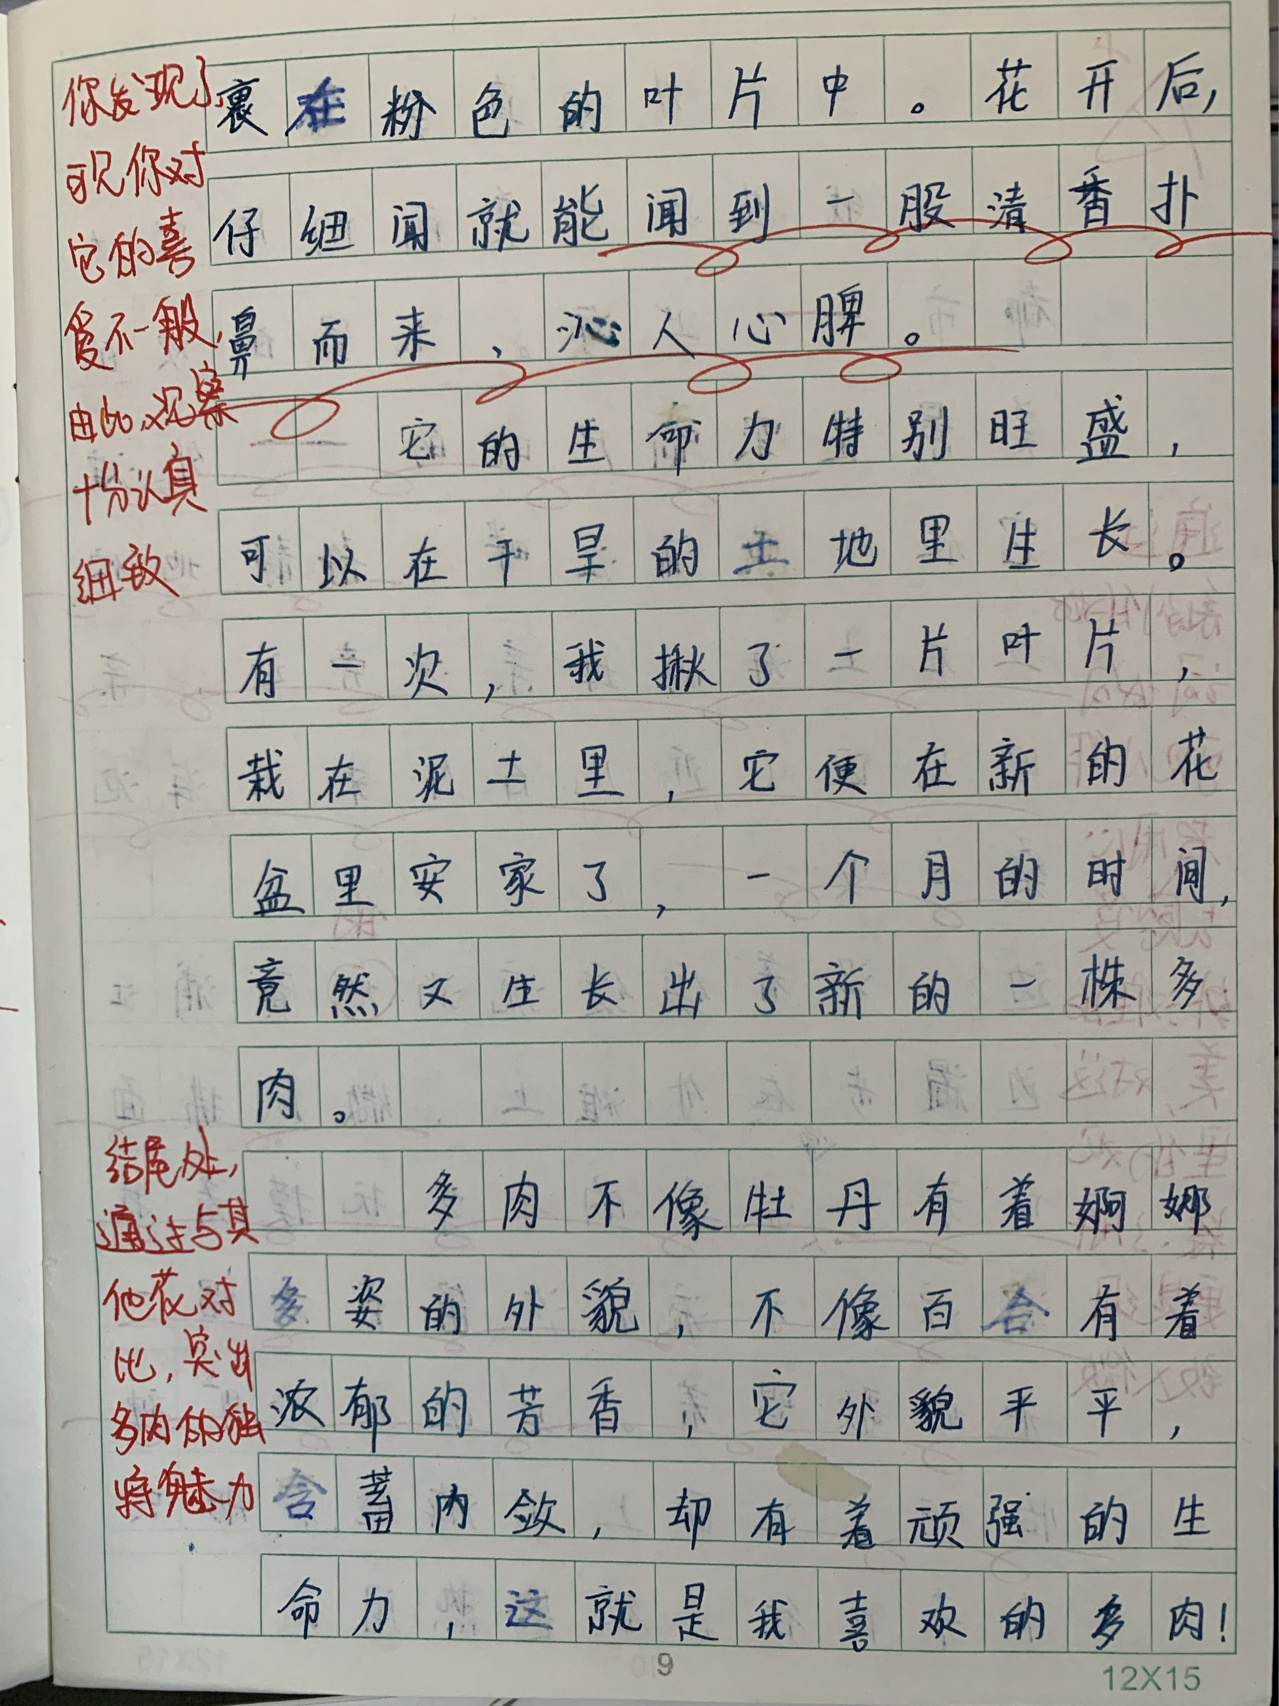 裹在粉色的叶片中。花开后,
仔细闻就能闻到一股清香扑
鼻而来，沁人心脾。
它的生命力特别旺盛，
可以在干旱的土地里生长。
有一次，我揪了一片叶片，
栽在泥土里，它便在新的花
盆里安家了，一个月的时间,
竟然又生长出了新的一株多
肉。
多肉不像牡丹有着婀娜
多姿的外貌，不像百合有着
浓郁的芳香，它外貌平平，
含蓄内敛，却有着顽强的生
命力，这就是我喜欢的多肉！
你发现了
可见你对
它的喜
爱不一般,
由此,观察
十分认真
细致
结尾处,
通过与其
他花对
比,突出
多肉的独
特魅力
9
12X15